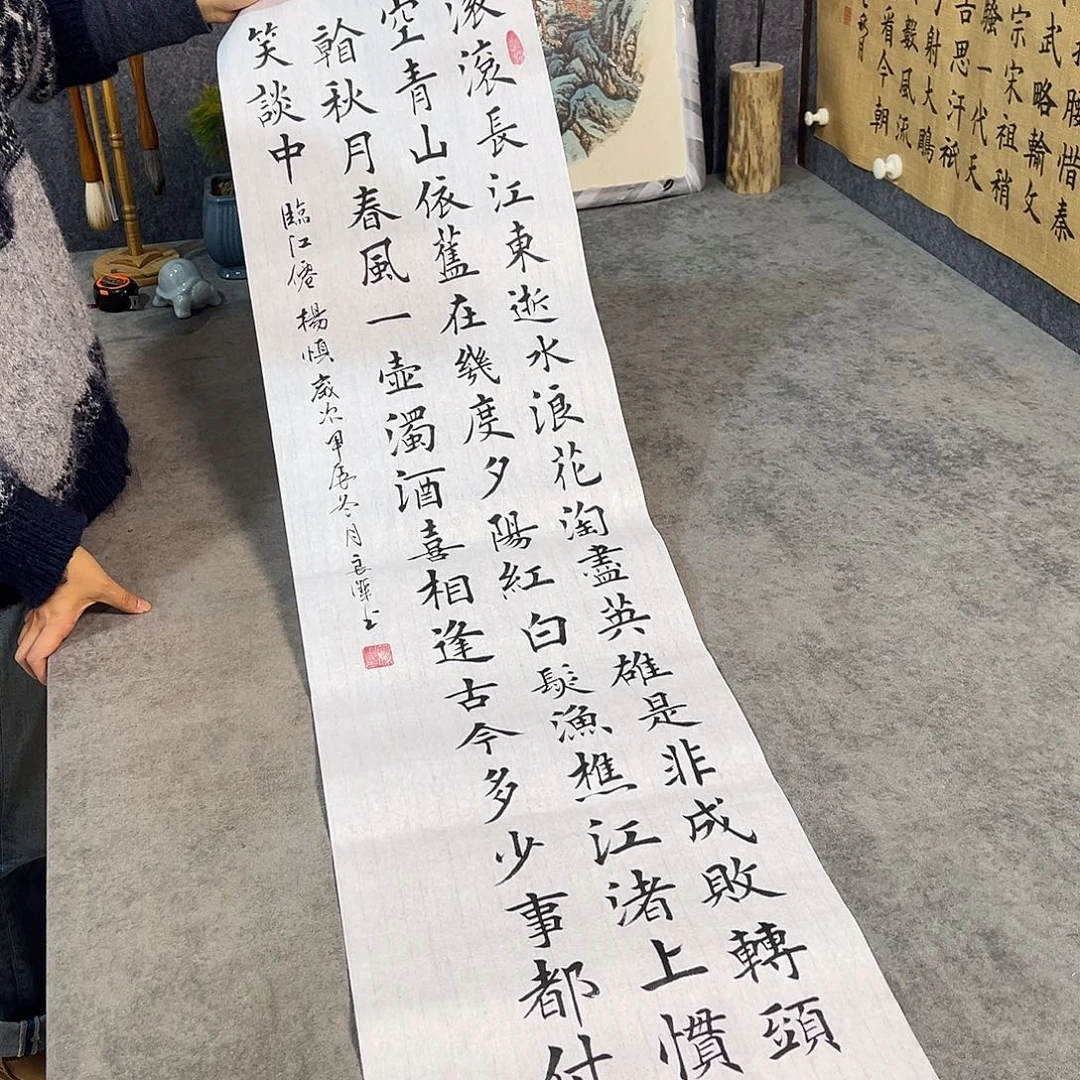 滚滾長江東逝水浪花淘盡英雄是非成敗轉頭
空青山依舊在幾度夕陽紅白髮漁樵江渚上慣
看秋月春風一壺濁酒喜相逢古今多少事都付
笑談中
臨江僊 楊慎 歲次甲辰冬月良澤書
腰惜秦
武略輸文
宗宋祖稍
騷一代天
吉思汗祇
射大鵰
數風流
看今朝
秋月